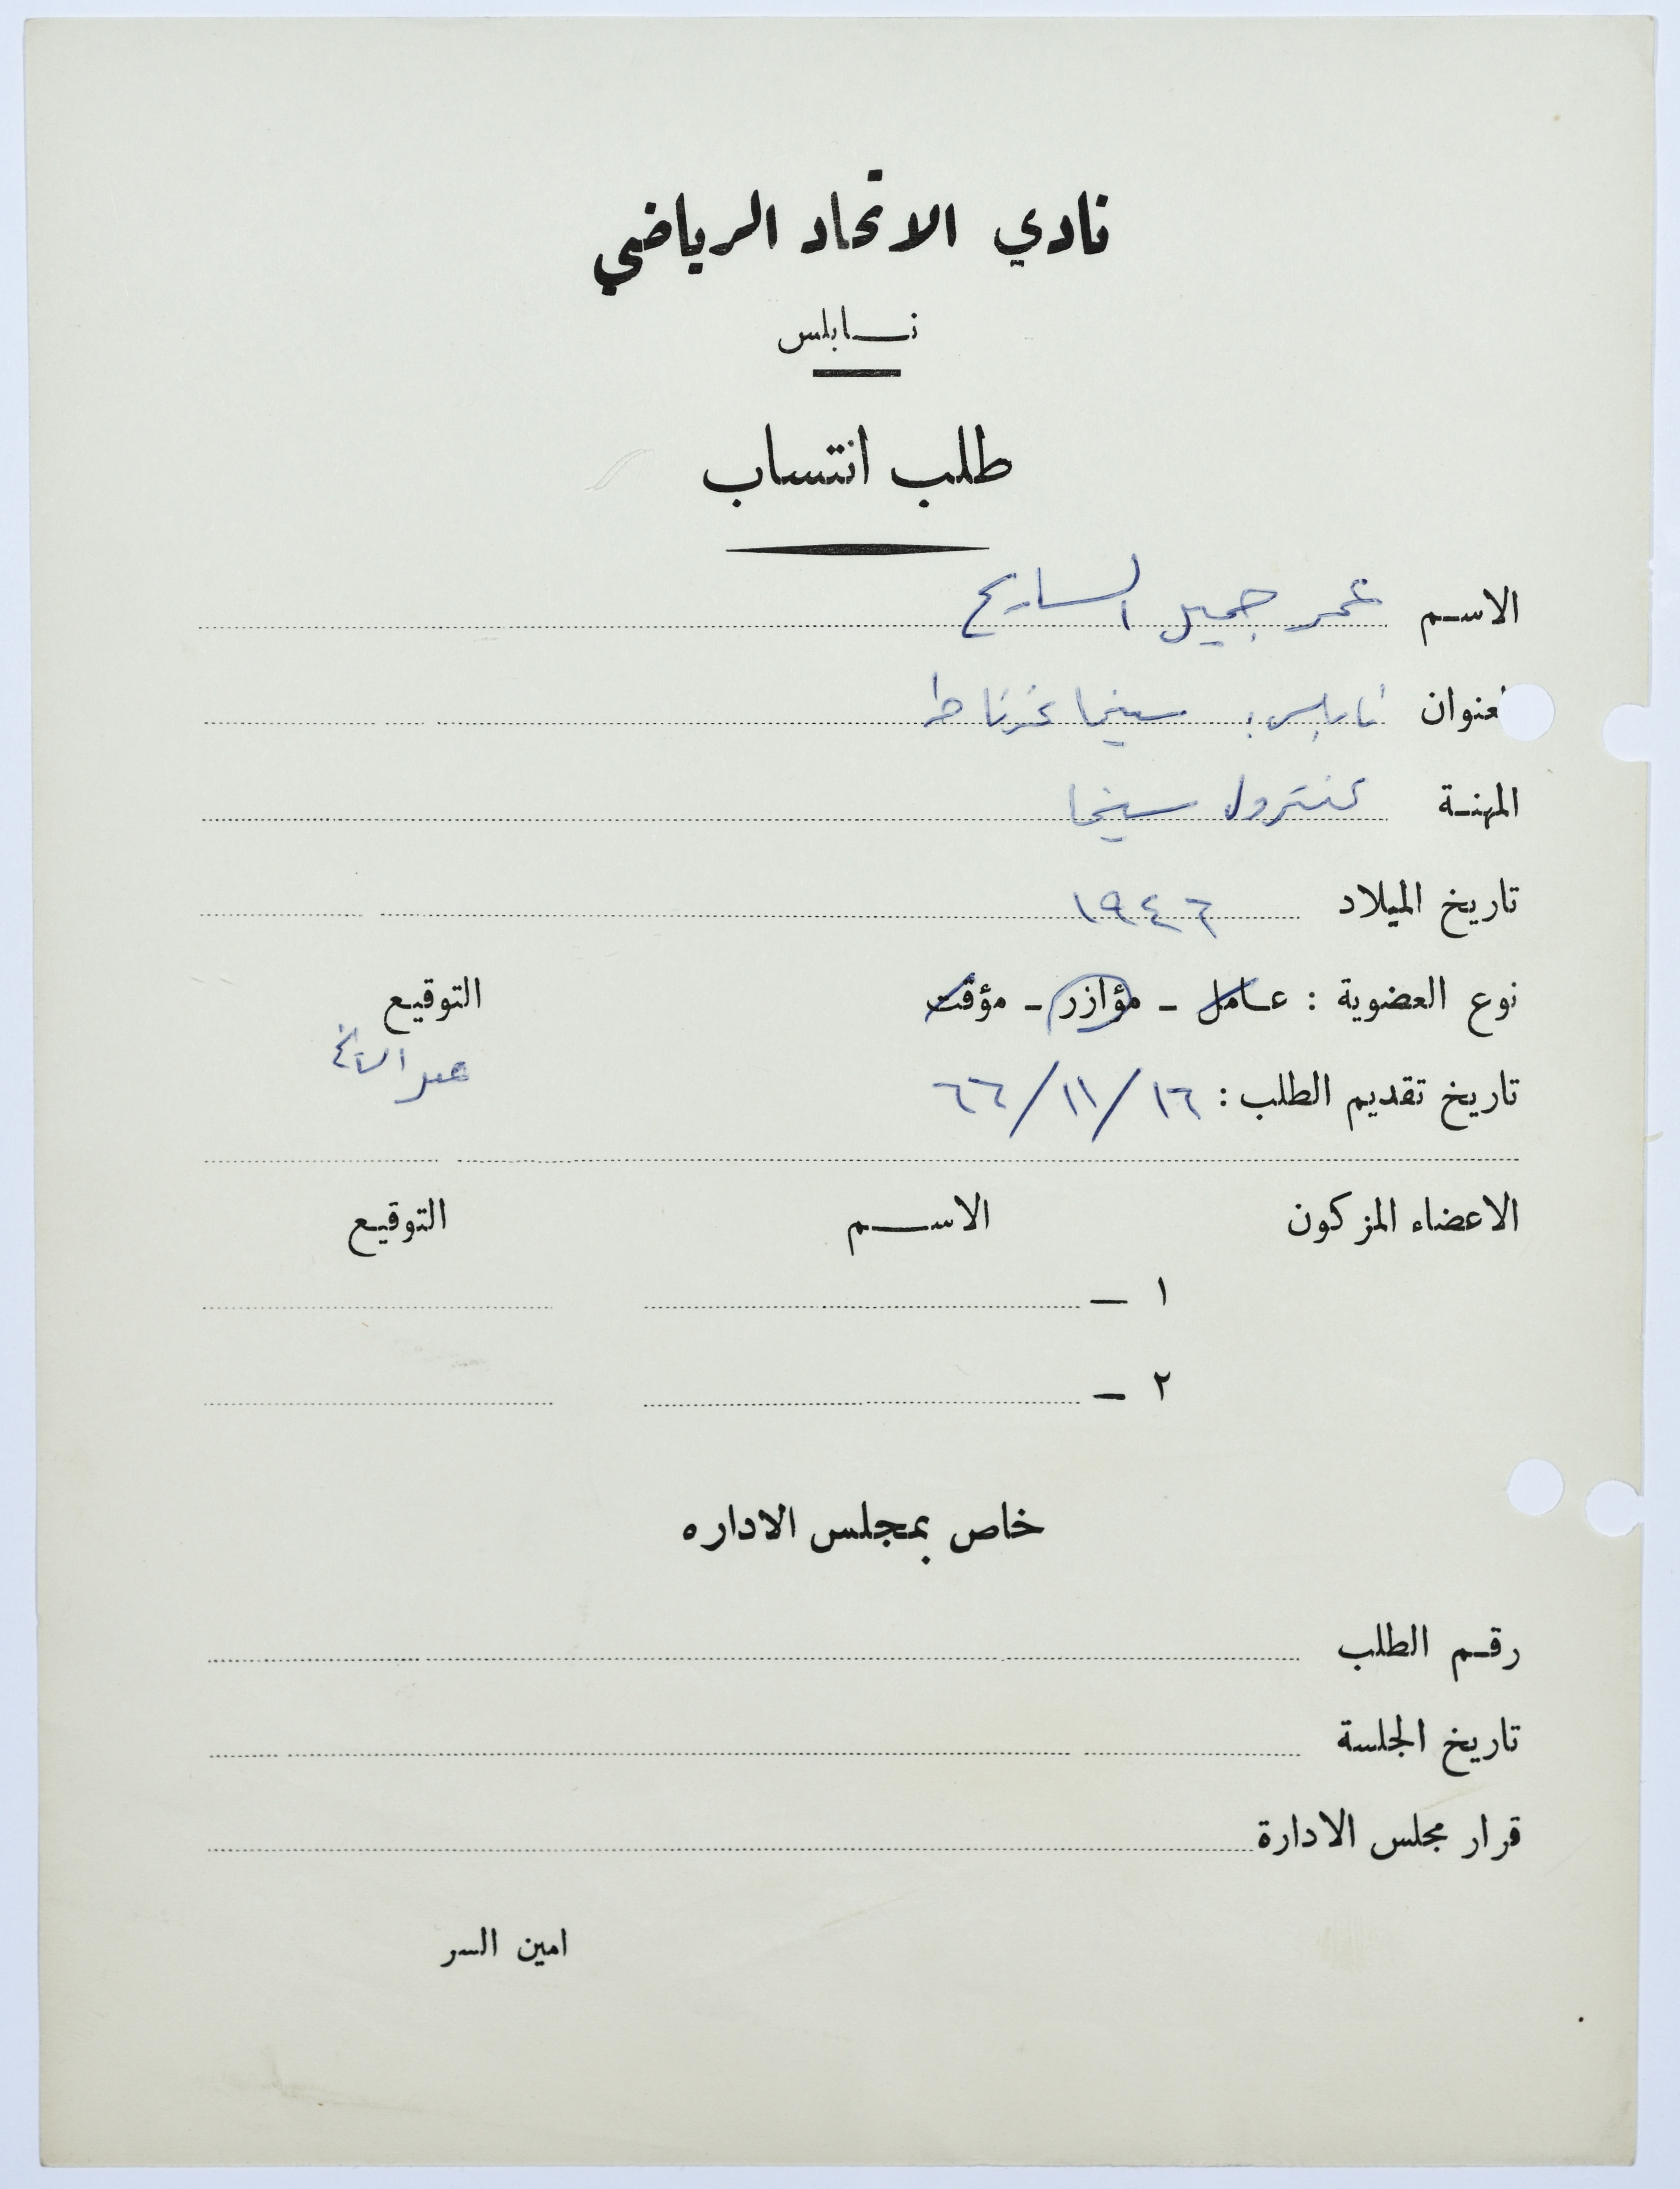 نادي الاتحاد الرياضي
نابلس
طلب انتساب
الاسم عمر جميل السايح
العنوان نابلس: سينما غرناطه
المهنة كنترول سينما
تاريخ الميلاد ١٩٤٦
نوع العضوية : عامل - مؤازر - مؤقت التوقيع
تاريخ تقديم الطلب : ١٦/١١/٦٦ عمر السايح
الاعضاء المزكون الاسم التوقيع
١ -
٢ -
خاص بمجلس الاداره
رقم الطلب
تاريخ الجلسة
قرار مجلس الادارة
امين السر